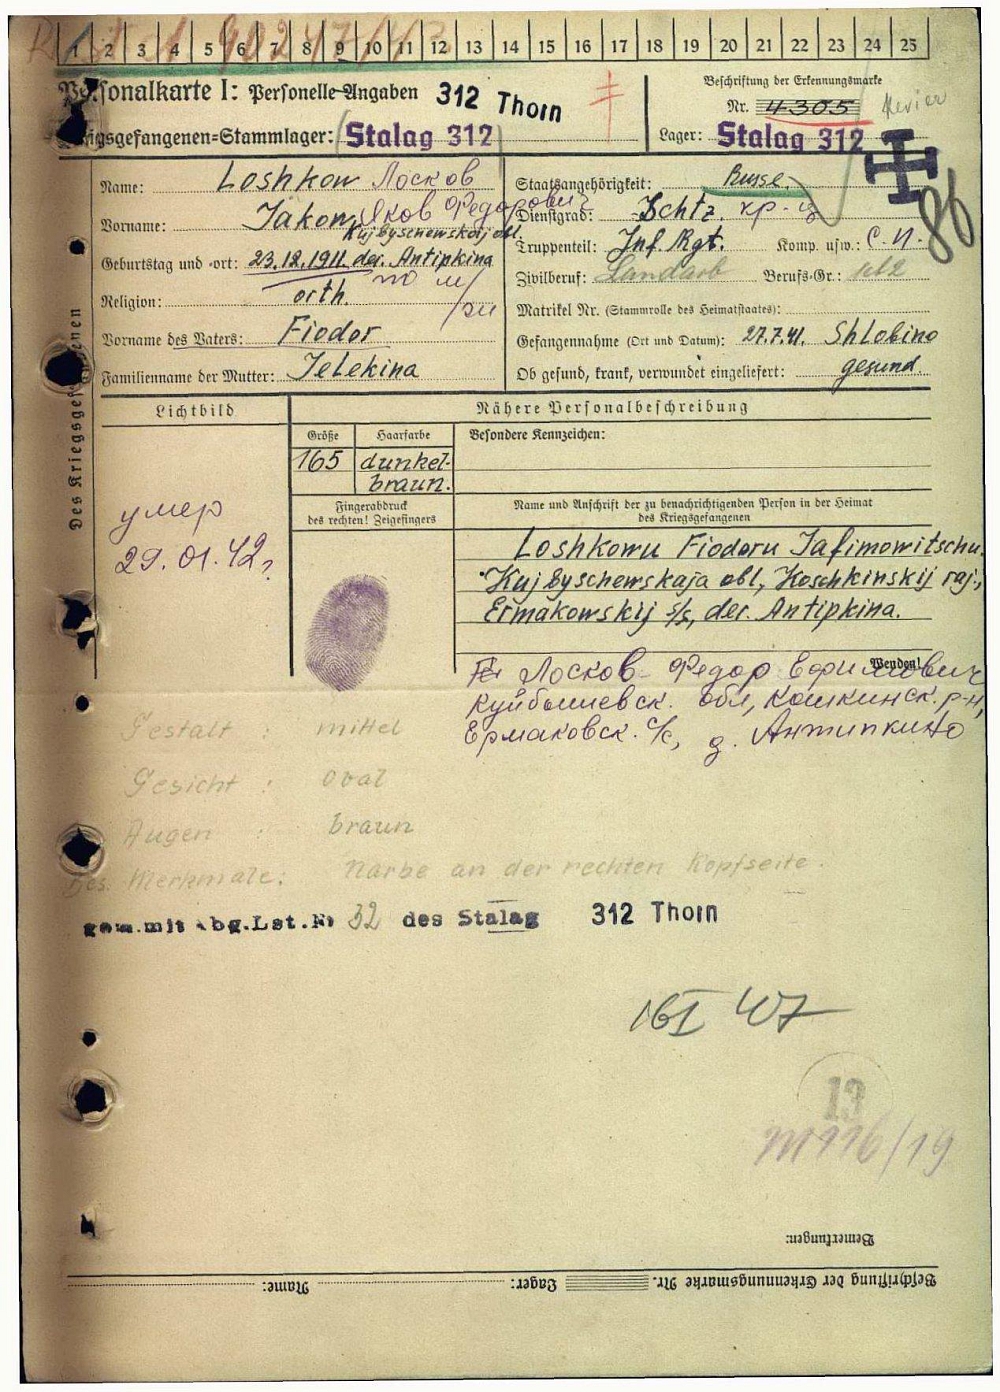 1 2 3 4 5 6 7 8 9 10 11 12 13 14 15 16 17 18 19 20 21 22 23 24 25
Personalkarte I: Personelle Angaben 312 Thorn
Beschriftung der Erkennungsmarke
Nr. 4305 Revier
Kriegsgefangenen=Stammlager: Stalag 312
Lager: Stalag 312
86
Des Kriegsgefangenen
Name: Loshkow Лосков
Vorname: Jakow Яков Федорович
Kujbyschewskoj obl.
Geburtstag und -ort: 23.12.1911 der. Antipkina
Religion: orth.
Vorname des Vaters: Fiodor
Familienname der Mutter: Jelekina
Staatsangehörigkeit: Russe
Dienstgrad: Schtz. кр-ц
Truppenteil: Inf. Rgt. Komp. usw.: с. п.
Zivilberuf: Landarb Berufs-Gr.:
Matrikel Nr. (Stammrolle des Heimatstaates):
Gefangennahme (Ort und Datum): 27.7.41. Shlobino
Ob gesund, krank, verwundet eingeliefert: gesund.
Lichtbild
Nähere Personalbeschreibung
Größe Haarfarbe Besondere Kennzeichen:
165 dunkel-
braun.
Fingerabdruck
des rechten! Zeigefingers
Name und Anschrift der zu benachrichtigenden Person in der Heimat
des Kriegsgefangenen
умер
29.01.42г.
Loshkowu Fiodoru Jafimowitschu.
Kujbyschewskaja obl., Koschkinskij raj.,
Ermakowskij s/s, der. Antipkina.
Wenden!
Лосков Федор Ефимович
Куйбышевск. обл, Кошкинск. р-н,
Ермаковск. с/с, д. Антипкино
Gestalt : mittel
Gesicht : oval
Augen : braun
Bes. Merkmale: Narbe an der rechten Kopfseite.
gem.mit Abg.Lst.Nr 32 des Stalag 312 Thorn
13
Bemerkungen:
Name: Lager: Beschriftung der Erkennungsmarke Nr.